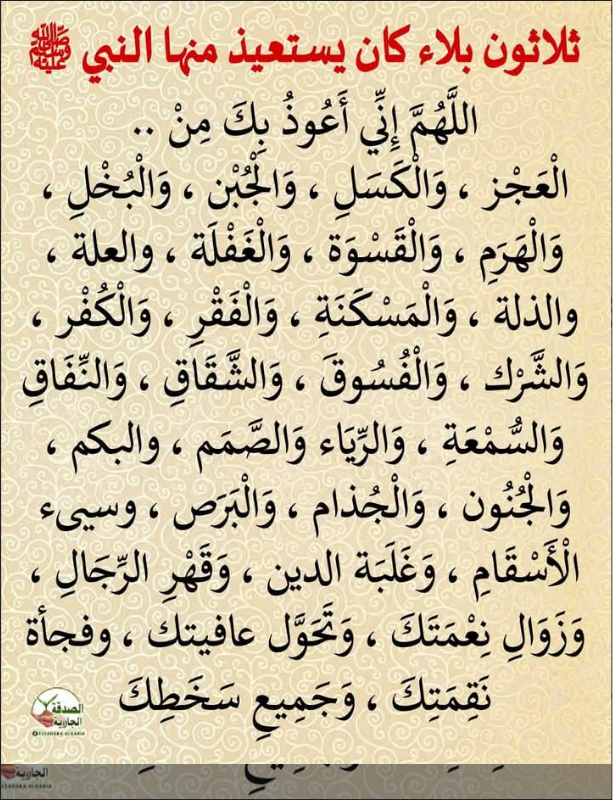 ثلاثون بلاء كان يستعيذ منها النبي ﷺ
اللَّهُمَّ إِنِّي أَعُوذُ بِكَ مِنْ ..
الْعَجْز ، وَالْكَسَلِ ، وَالْجُبْن ، وَالْبُخْلِ ،
وَالْهَرَمِ ، وَالْقَسْوَة ، وَالْغَفْلَة ، والعلة ،
والذلة ، وَالْمَسْكَنَةِ ، وَالْفَقْرِ ، وَالْكُفْر ،
وَالشَّرْك ، وَالْفُسُوقَ ، وَالشَّقَاقِ ، وَالنِّفَاقِ
وَالسُّمْعَةِ ، وَالرِّيَاء وَالصَّمَم ، والبكم ،
وَالْجُنُون ، وَالْجُذام ، وَالْبَرَص ، وسيىء
الْأَسْقَامِ ، وَغَلَبَة الدين ، وَقَهْرِ الرِّجَالِ ،
وَزَوَالِ نِعْمَتَكَ ، وَتَحَوَّل عافيتك ، وفجأة
نَقِمَتِكَ ، وَجَمِيعِ سَخَطِكَ
الصدقة
الجارية
الجارية